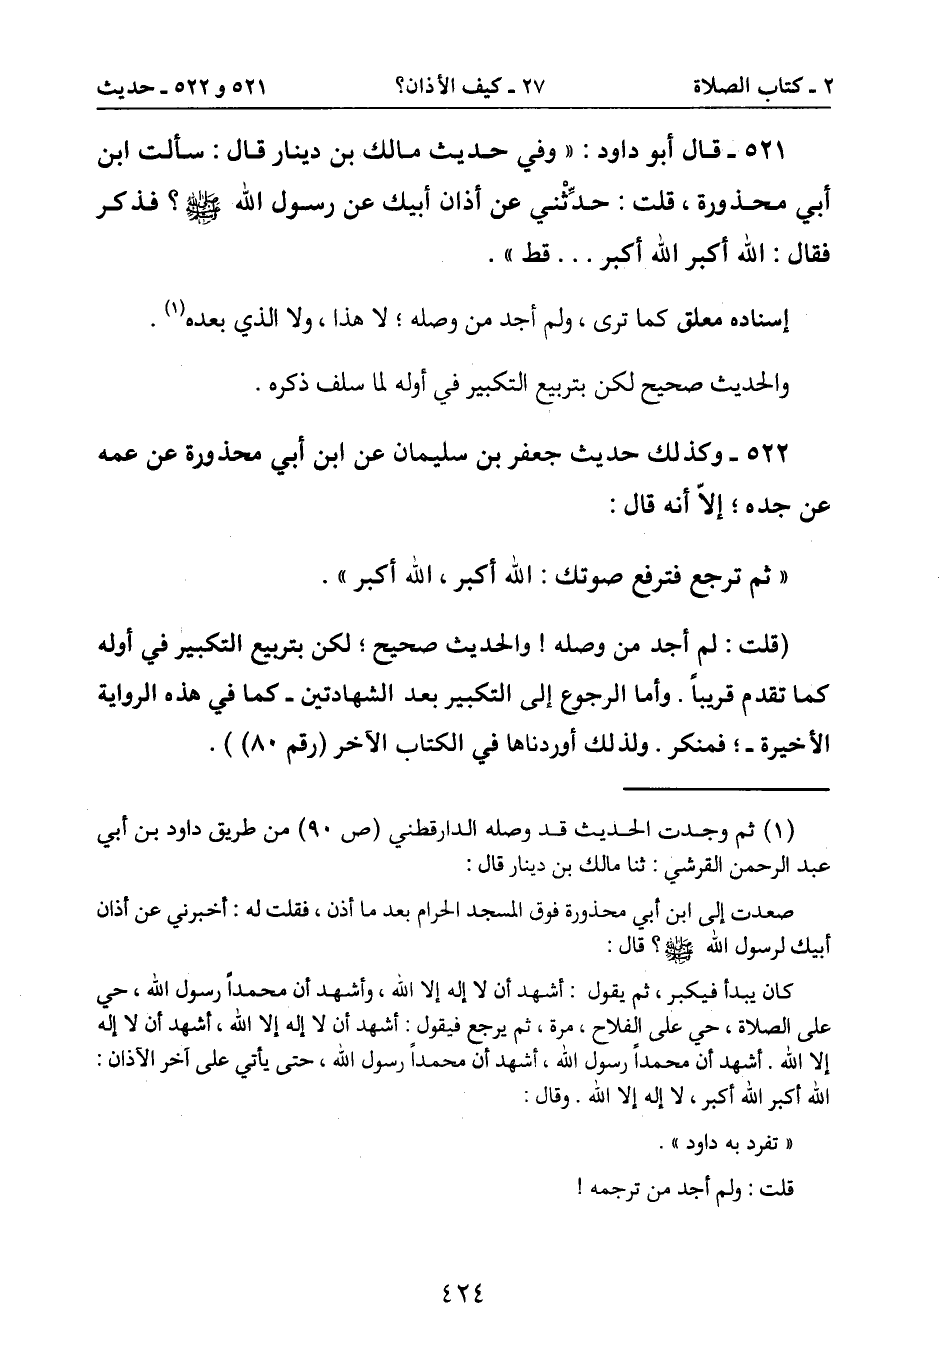 ٢ ـ كتاب الصلاة ٢٧ ـ كيف الأذان؟ ٥٢١ و ٥٢٢ ـ حديث
٥٢١ ـ قال أبو داود : « وفي حديث مالك بن دينار قال : سألت ابن
أبي محذورة ، قلت : حدِّثْني عن أذان أبيك عن رسول الله ﷺ ؟ فذكر
فقال : الله أكبر الله أكبر . . . قط » .
إسناده معلق كما ترى ، ولم أجد من وصله ؛ لا هذا ، ولا الذي بعده(١) .
والحديث صحيح لكن بتربيع التكبير في أوله لما سلف ذكره .
٥٢٢ ـ وكذلك حديث جعفر بن سليمان عن ابن أبي محذورة عن عمه
عن جده ؛ إلاّ أنه قال :
« ثم ترجع فترفع صوتك : الله أكبر ، الله أكبر » .
(قلت : لم أجد من وصله ! والحديث صحيح ؛ لكن بتربيع التكبير في أوله
كما تقدم قريباً . وأما الرجوع إلى التكبير بعد الشهادتين ـ كما في هذه الرواية
الأخيرة ـ ؛ فمنكر . ولذلك أوردناها في الكتاب الآخر (رقم ٨٠) ) .
(١) ثم وجدت الحديث قد وصله الدارقطني (ص ٩٠) من طريق داود بن أبي
عبد الرحمن القرشي : ثنا مالك بن دينار قال :
صعدت إلى ابن أبي محذورة فوق المسجد الحرام بعد ما أذن ، فقلت له : أخبرني عن أذان
أبيك لرسول الله ﷺ ؟ قال :
كان يبدأ فيكبر ، ثم يقول : أشهد أن لا إله إلا الله ، وأشهد أن محمداً رسول الله ، حي
على الصلاة ، حي على الفلاح ، مرة ، ثم يرجع فيقول : أشهد أن لا إله إلا الله ، أشهد أن لا إله
إلا الله . أشهد أن محمداً رسول الله ، أشهد أن محمداً رسول الله ، حتى يأتي على آخر الأذان :
الله أكبر الله أكبر ، لا إله إلا الله . وقال :
« تفرد به داود » .
قلت : ولم أجد من ترجمه !
٤٢٤